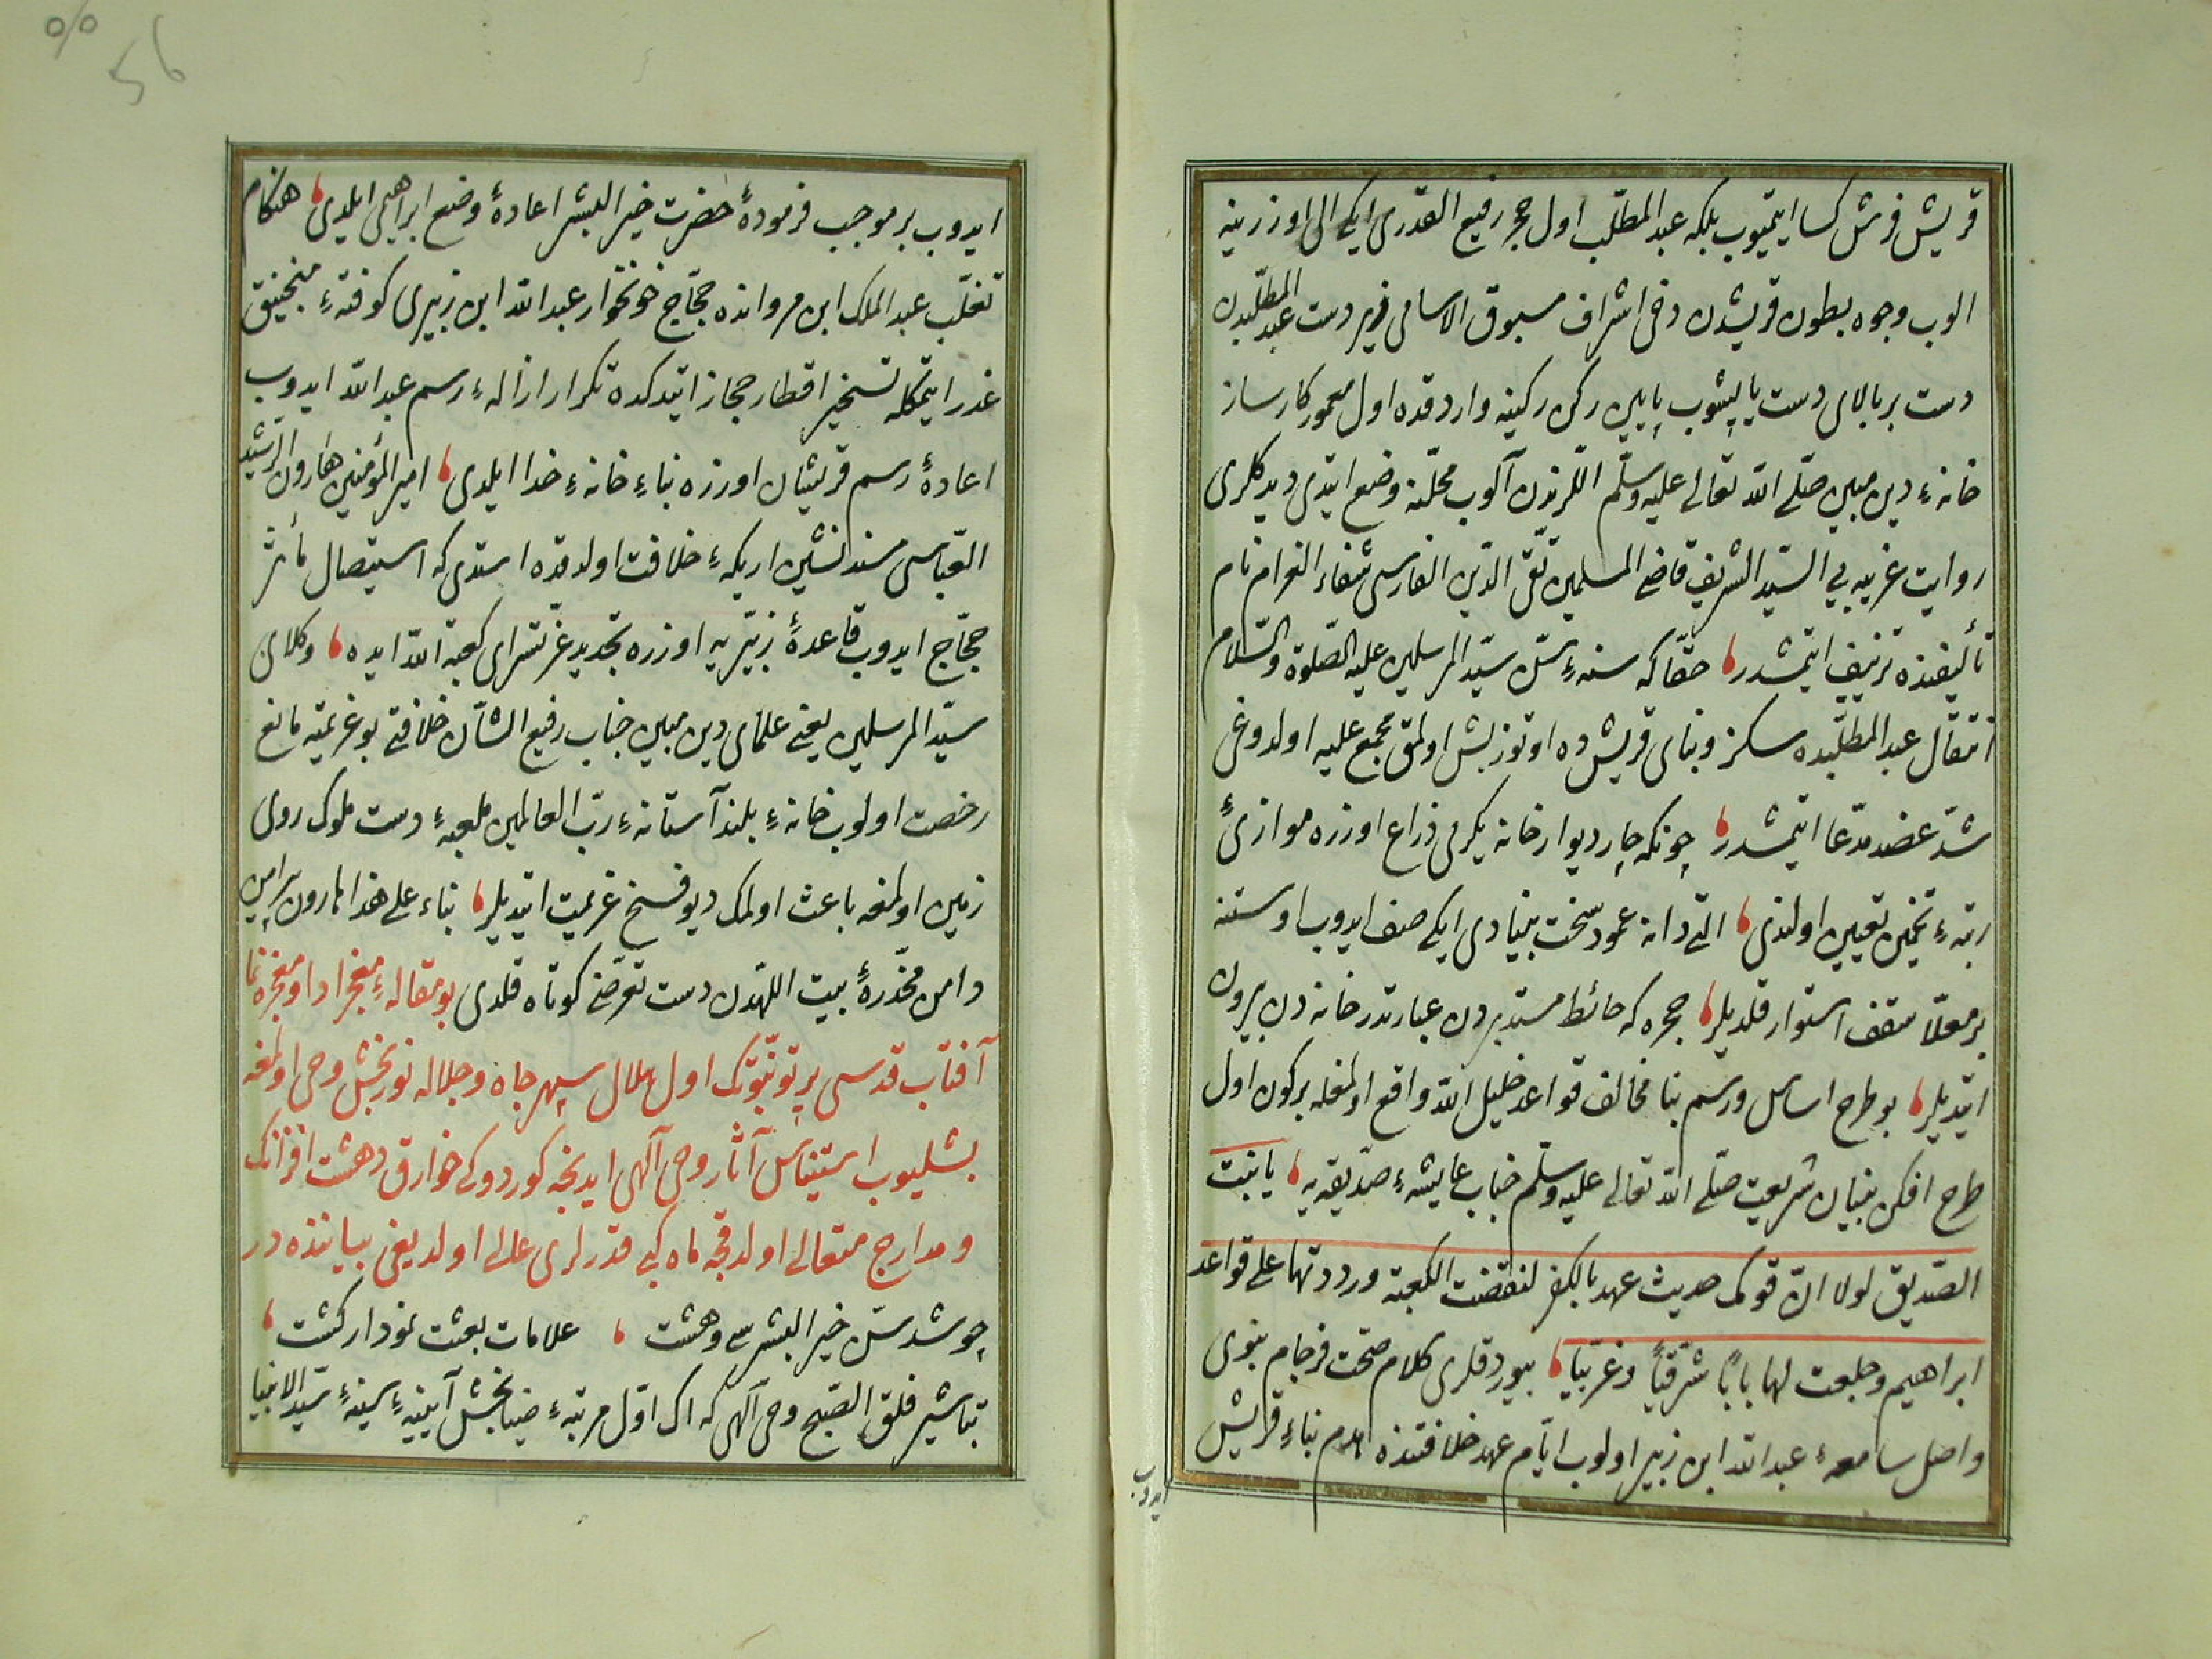 قریش فرش کسا ایتمیوب بلکه عبد المطلب اول حجر رفیع القدری ایکی الی اوزرینه
الوب وجوه بطون قریشدن دخی اشراف مسبوق الاسامی زیر دست عبد المطلبدن
دست بر بالای دست یاپیشوب پایین رکن رکینه واردقده اول معمور کارساز
خانهٔ دین مبین صلّی الله تعالی علیه وسلّم اللرندن آلوب محلّنه وضع ایتدی دیدکلری
روایت غریبه یی السیّد الشریف قاضی المسلمین تقی الدّین الفارسی شفاء الغرام نام
تألیفنده تزییف ایتمشدر حقّا که سنهٔ سنّ سیّد المرسلین علیه الصّلوة والسّلام
انتقال عبد المطلّبده سکز وبنای قریش ده اوتوز بش اولمق مجمع علیه اولدوغی
شدّ عضد مدّعا ایتمشدر چونکه چار دیوار خانه یکرمی ذراع اوزره موازیٔ
رتبهٔ تخمین تعیین اولندی التی دانه عمود سخت بنیادی ایکی صف ایدوب اوستنه
بر معلّا سقف استوار قلدیلر حجره که حائط مستدیردن عبارتدر خانه دن بیرون
ایتدیلر بو طرح اساس ورسم بنا مخالف قواعد خلیل الله واقع اولمغله بر کون اول
طرح افکن بنیان شریعت صلّی الله تعالی علیه وسلّم جناب عایشهٔ صدّیقه یه یا بنت
الصّدیق لولا انّ قومک حدیث عهد بالکفر لنقضت الکعبة ورددتها علی قواعد
ابراهیم وجلعت لها بابًا شرقیًّا وغربیًّا بیوردقلری کلام صحّت فرجام نبوی
واصل سامعهٔ عبد الله ابن زبیر اولوب ایّام عهد خلافتنده هدم بناء قریش
ایدوب
ایدوب بر موجب فرمودهٔ حضرت خیر البشر اعادهٔ وضع ابراهیمی ایلدی هنکام
تغلّب عبد الملک ابن مروانده حجّاج خونخوار عبد الله ابن زبیری کوفتهٔ منجنیق
غدر ایتمکله تسخیر اقطار حجاز ایتدکده تکرار ازالهٔ رسم عبد الله ایدوب
اعادهٔ رسم قریشیان اوزره بناء خانهٔ خدا ایلدی امیر المؤمنین هارون الرّشید
العبّاسی مسند نشین اریکهٔ خلافت اولدقده استدی که استیصال مأثر
حجّاج ایدوب قاعدهٔ زبیّریه اوزره تجدید عزّتسرای کعبة الله ایده وکلای
سیّد المرسلین یعنی علمای دین مبین جناب رفیع الشّان خلافتی بو عزیمته مانع
رخصت اولوب خانهٔ بلند آستانهٔ ربّ العالمین ملعبهٔ دست ملوک روی
زمین اولمغه باعث اولمک دیو فسخ عزیمت ایتدیلر بناء علی هذا هارون پیرامن
دامن مخدّرهٔ بیت اللّهدن دست تعرّضی کوتاه قلدی بو مقالهٔ معجز ادا ومعجزه نما
آفتاب قدسی پرتو نبوّتک اول هلال سپهر جاه وجلاله نوربخش وحی اولمغه
بشلیوب استیناس آثار وحی آلهی ایدنجه کوردوکی خوارق دهشت افزانک
ومدارج متعالی اولدقجه ماه کبی قدرلری عالی اولدیغی بیاننده در
چو شد سنّ خیر البشر سی وهشت علامات بعثت نمودار کشت
تباشیر فلق الصّبح وحی آلهی که اک اوّل مرتبهٔ ضیابخش آیینهٔ سینهٔ سیّد الانبیا
56